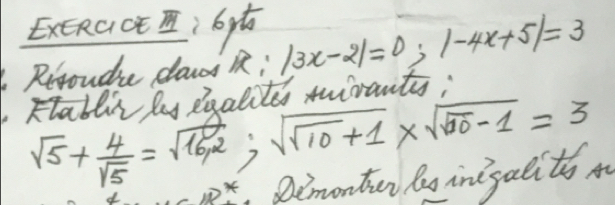 EXERCICE III : 6 pts
. Résoudre dans ℝ : |3x-2|=0 ; |-4x+5|=3
. Etablir les égalités suivantes :
√5 + 4/√5 = √16,2 ; √(√10+1) × √(√10-1) = 3
ℝ*₊. Démontrer les inégalités